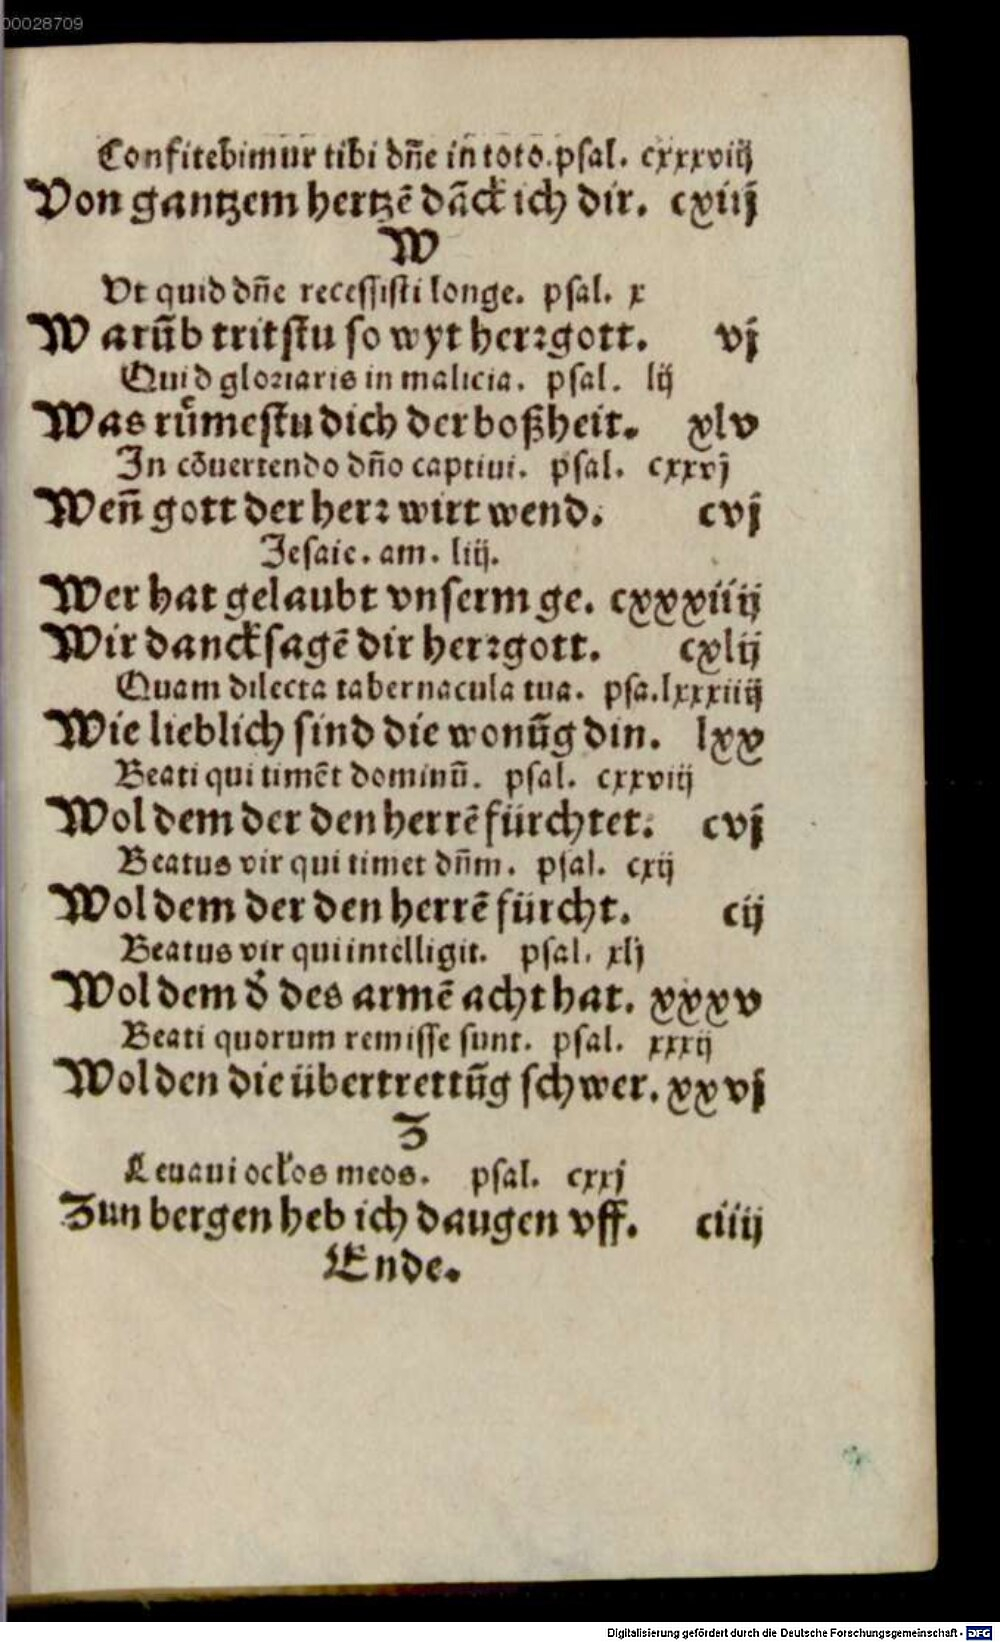 00028709
Confitebimur tibi dñe in toto. psal. cxxxviij
Von gantzem hertzē dāck ich dir. cxiij
W
Vt quid dñe recessisti longe. psal. x
Warūb tritstu so wyt herꝛgott. vj
Quid gloꝛiaris in malicia. psal. lij
Was růmestu dich der boßheit. xlv
In cōuertendo dño captiui. psal. cxxvj
Weñ gott der herꝛ wirt wend. cvj
Jesaie. am. liij.
Wer hat gelaubt vnserm ge. cxxxiiij
Wir dancksagē dir herꝛgott. cxlij
Quam dilecta tabernacula tua. psa. lxxxiiij
Wie lieblich sind die wonūg din. lxx
Beati qui timēt dominū. psal. cxxviij
Wol dem der den herrē fürchtet. cvj
Beatus vir qui timet dñm. psal. cxij
Wol dem der den herrē fürcht. cij
Beatus vir qui intelligit. psal. xlj
Wol dem ď des armē acht hat. xxxv
Beati quorum remisse sunt. psal. xxxij
Wol den die übertrettūg schwer. xxvj
Z
Leuaui oclos meos. psal. cxxj
Zun bergen heb ich daugen vff. ciiij
Ende.
Digitalisierung gefördert durch die Deutsche Forschungsgemeinschaft - DFG